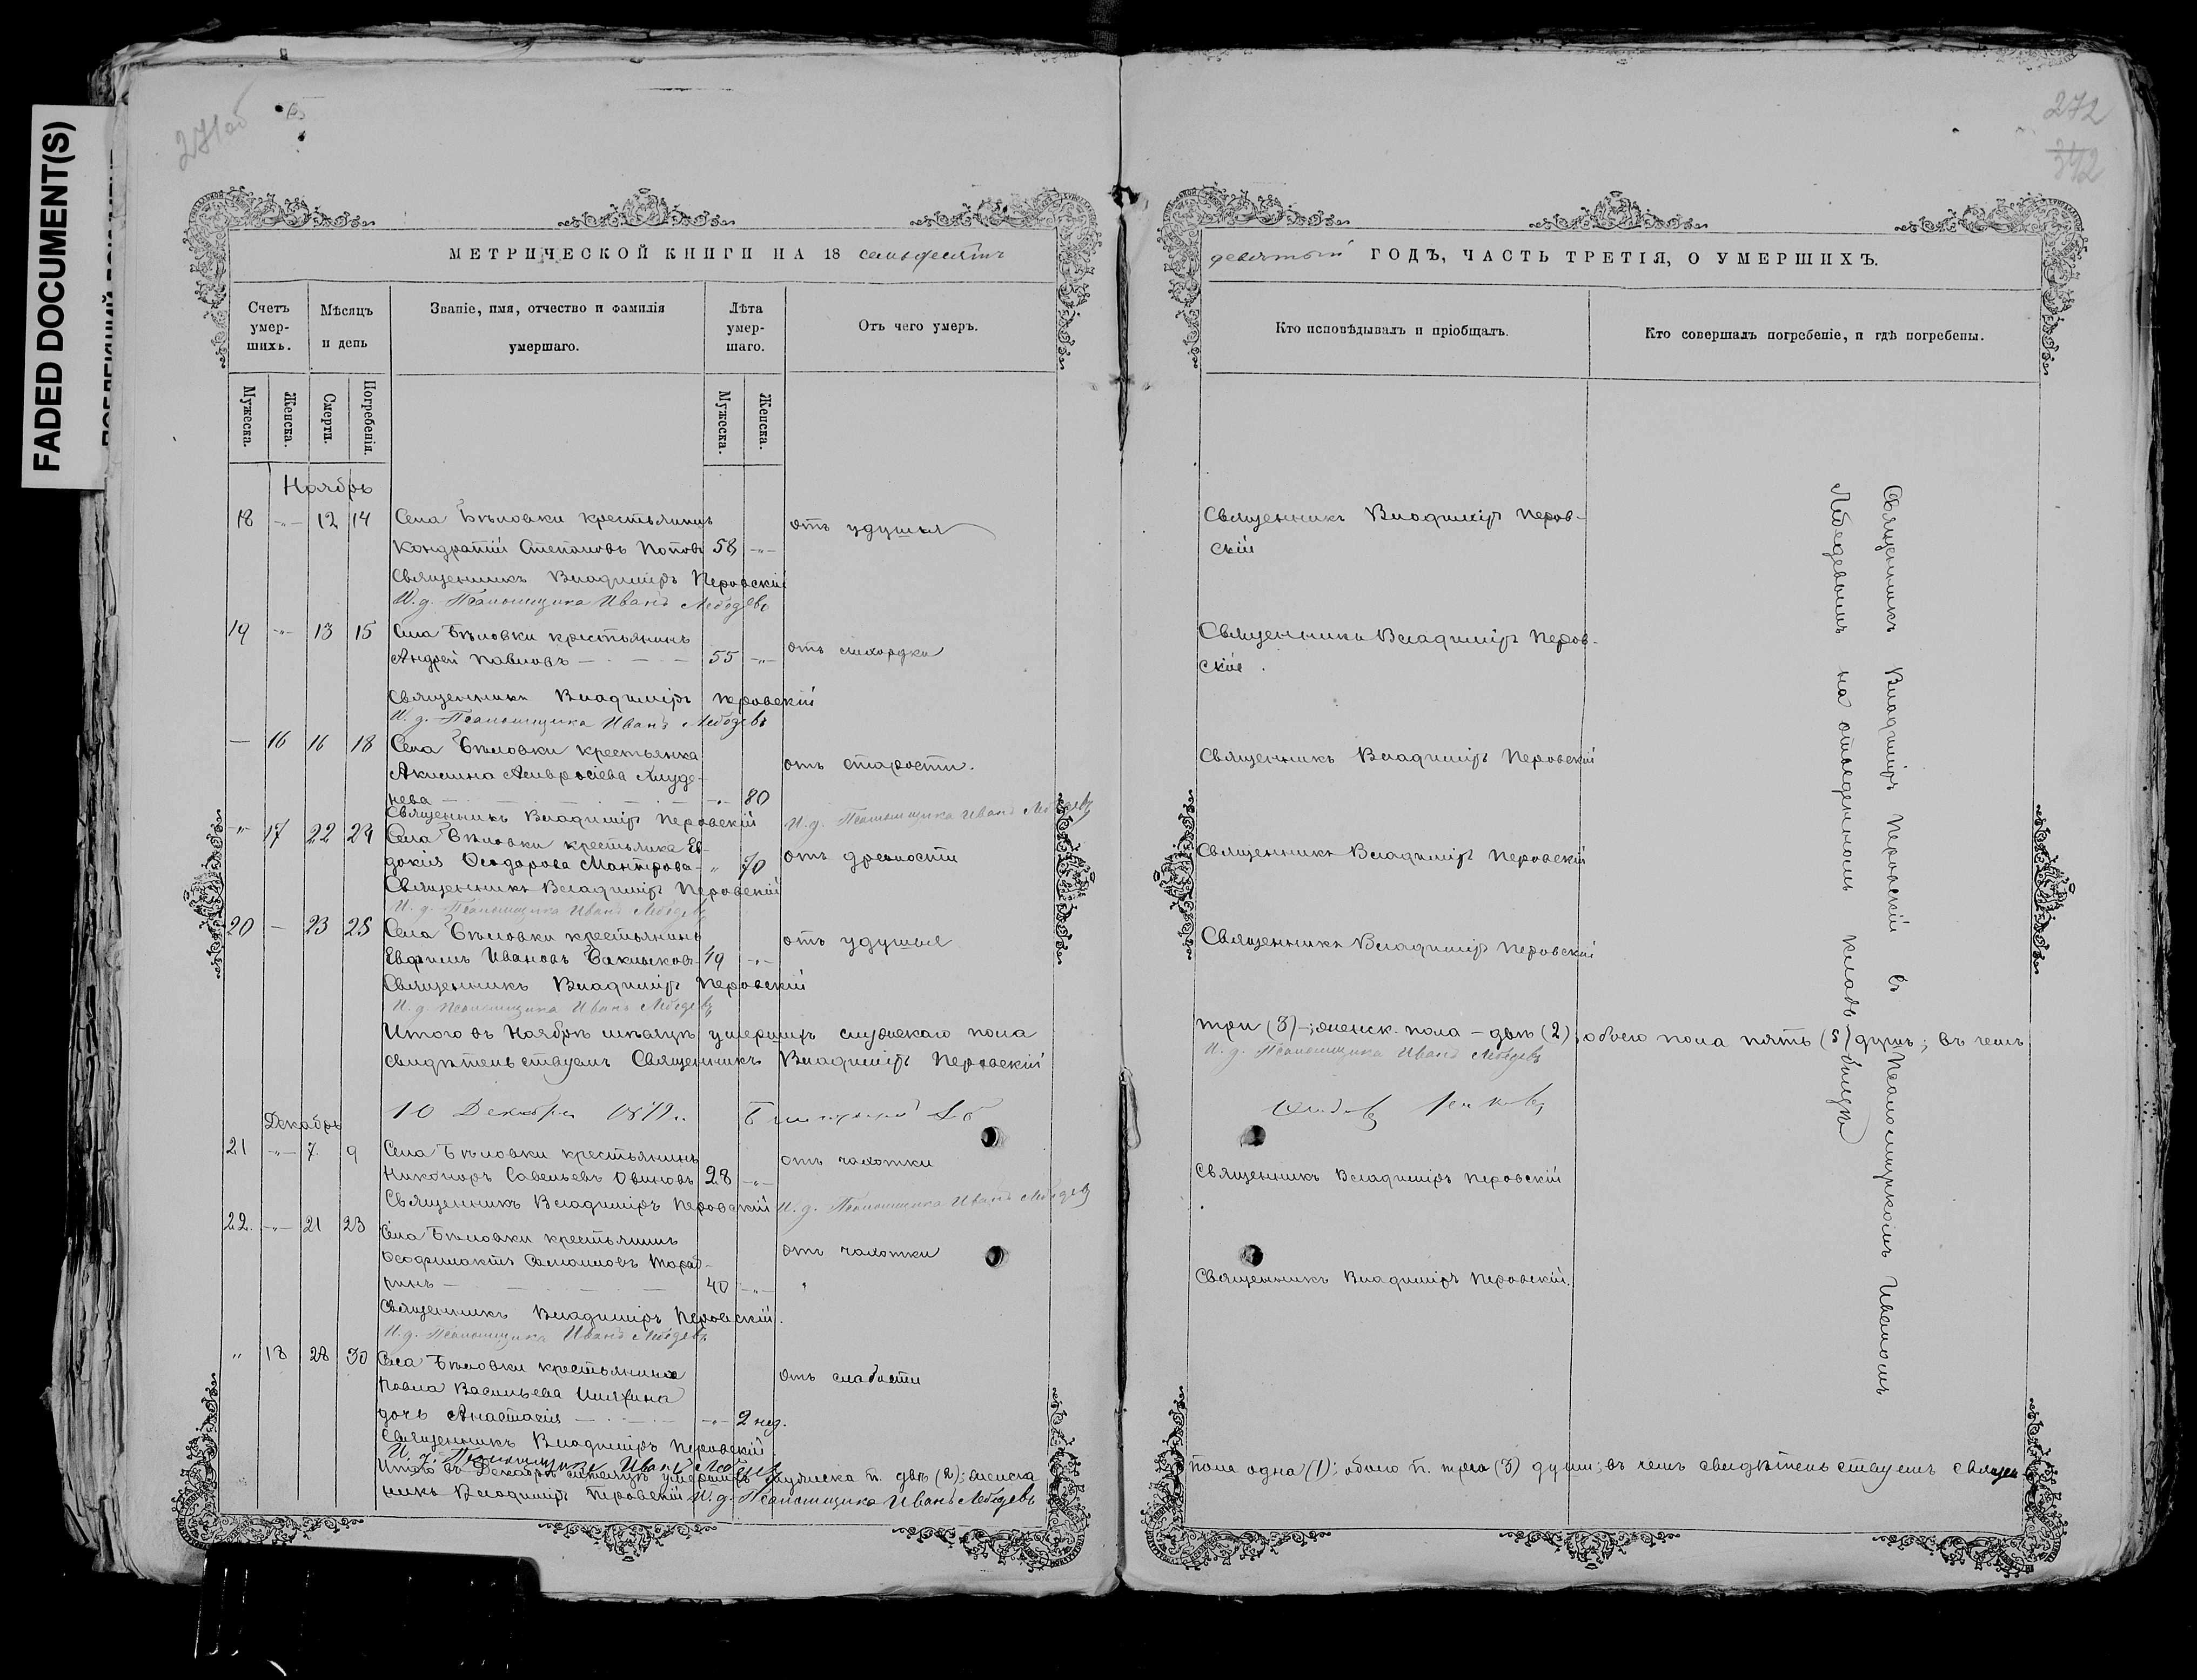 FADED DOCUMENT(S)
271об
272
342
МЕТРИЧЕСКОЙ КНИГИ НА 18 семьдесятъ
девятый ГОДЪ, ЧАСТЬ ТРЕТІЯ, О УМЕРШИХЪ.
Счетъ умер-
шихъ.
Мѣсяцъ
и день
Званіе, имя, отчество и фамилія
умершаго.
Лѣта
умер-
шаго.
Отъ чего умеръ.
Кто исповѣдывалъ и пріобщалъ.
Кто совершалъ погребеніе, и гдѣ погребены.
Мужеска.
Женска.
Смерти.
Погребенія.
Мужеска.
Женска.
Ноябрь
18 -„- 12 14 Села Бѣловки крестьянинъ
Кондратій Степановъ Поповъ 58 -„-
отъ удушья
Священникъ Владиміръ Перов-
скій
Священникъ Владиміръ Перовскій
И. д. Псаломщика Иванъ Лебедевъ
19 -„- 13 15 Села Бѣловки крестьянинъ
Андрей Павловъ 55 -„-
отъ лихорадки
Священникъ Владиміръ Перов-
скій.
Священникъ Владиміръ Перовскій
И. д. Псаломщика Иванъ Лебедевъ
— 16 16 18 Села Бѣловки крестьянка
Акилина Амвросіева
нева -„- 80
отъ старости.
Священникъ Владиміръ Перовскій
Священникъ Владиміръ Перовскій
И. д. Псаломщика Иванъ Лебедевъ
„ 17 22 24 Села Бѣловки крестьянка Ев-
докія Ѳеодорова „ 70
отъ древности
Священникъ Владиміръ Перовскій
Священникъ Владиміръ Перовскій
И. д. Псаломщика Иванъ Лебедевъ
20 — 23 25 Села Бѣловки крестьянинъ
Евфимъ Ивановъ 49 -„-
отъ удушья
Священникъ Владиміръ Перовскій
Священникъ Владиміръ Перовскій
И. д. Псаломщика Иванъ Лебедевъ
Итого въ Ноябрѣ мѣсяцѣ умершихъ мужескаго пола
три (3)—; женск. пола — двѣ (2); обоего пола пять (5) душъ; въ чемъ
свидѣтельствуемъ Священникъ Владиміръ Перовскій
И. д. Псаломщика Иванъ Лебедевъ
10 Декабря 1879 г.
Декабрь
21 -„- 7 9 Села Бѣловки крестьянинъ
Никаноръ Савельевъ Овиновъ 28 -„-
отъ чахотки
Священникъ Владиміръ Перовскій
Священникъ Владиміръ Перовскій
И. д. Псаломщика Иванъ Лебедевъ
22. -„- 21 23 Села Бѣловки крестьянинъ
Ѳеофилактъ
ринъ 40 -„-
отъ чахотки
Священникъ Владиміръ Перовскій.
Священникъ Владиміръ Перовскій.
И. д. Псаломщика Иванъ Лебедевъ
„ 18 28 30 Села Бѣловки крестьянина
Павла Васильева
дочь Анастасія -„- 2 нед.
отъ слабости
Священникъ Владиміръ Перовскій
И. д. Псаломщика Иванъ Лебедевъ
Итого въ Декабрѣ мѣсяцѣ умершихъ мужеска п. двѣ (2); женска
пола одна (1); обоего п. три (3) души; въ чемъ свидѣтельствуемъ Священ
никъ Владиміръ Перовскій И. д. Псаломщика Иванъ Лебедевъ
Священникъ Владиміръ Перовскій съ Псаломщикомъ Иваномъ
Лебедевымъ на отведенномъ кладбищѣ